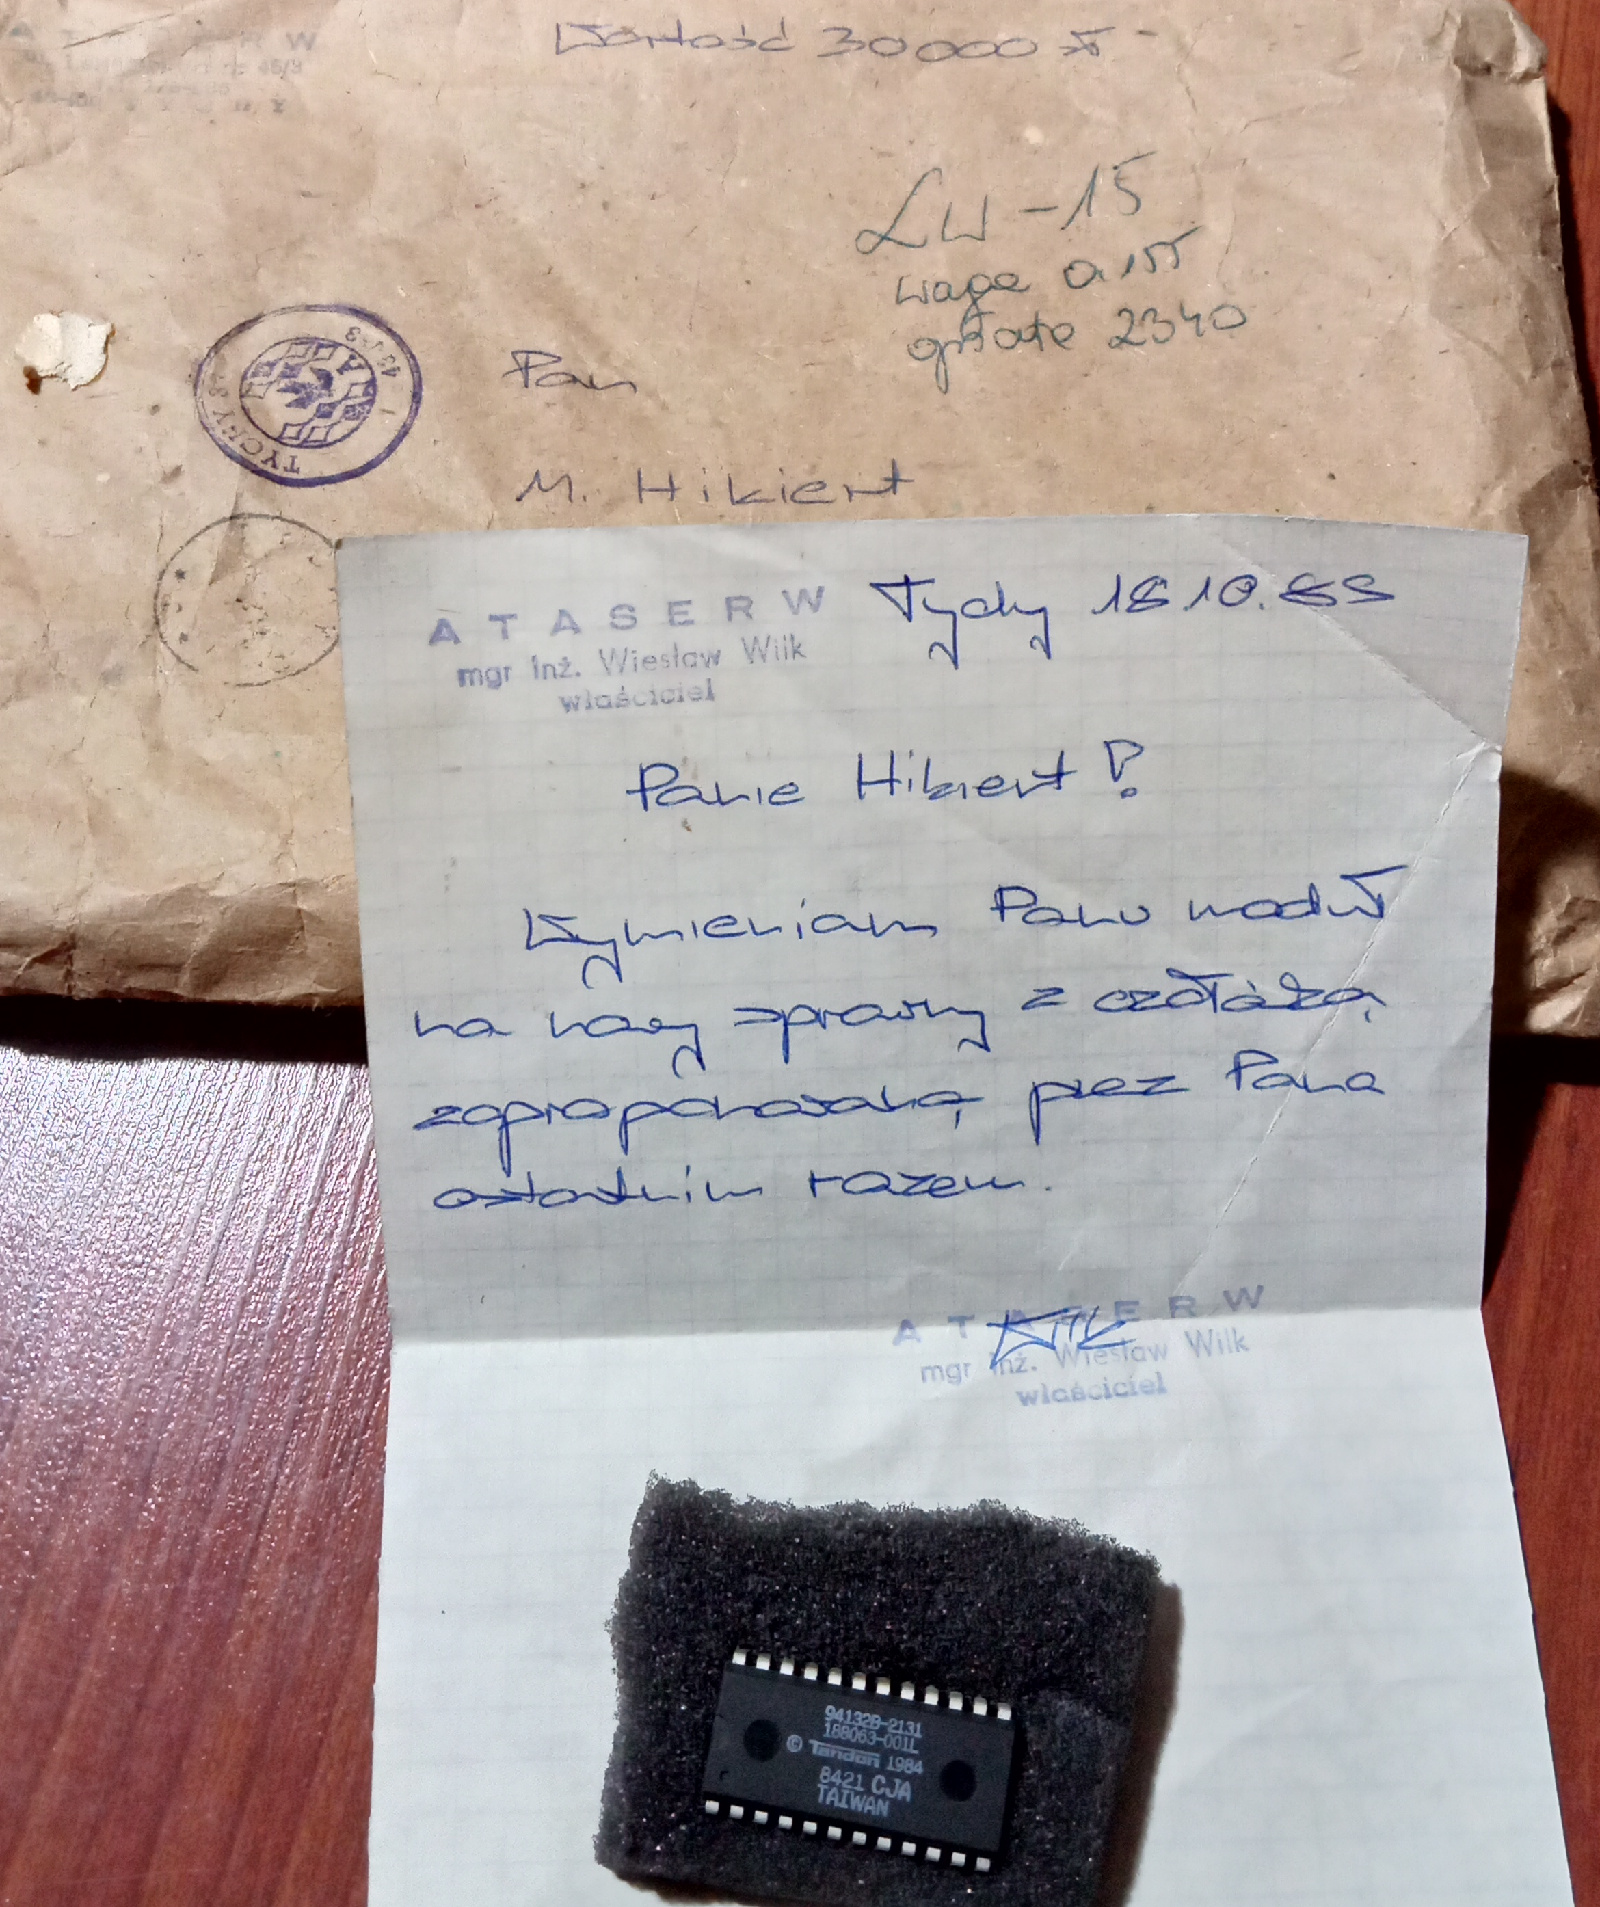 A T A S E R W
Wartość 30000 zł -
LW - 15
waga 0.155
opłata 2340
TYCHY
Pan
M. Hikiert
A T A S E R W
mgr inż. Wiesław Wilk
właściciel
Tychy 18.10.89
Panie Hikiert!
Wymieniam Panu moduł
na nowy sprawny z czołówką
zaproponowaną przez Pana
ostatnim razem.
A T A S E R W
mgr inż. Wiesław Wilk
właściciel
94132B-2131
188063-001L
© Tandon 1984
8421 CJA
TAIWAN